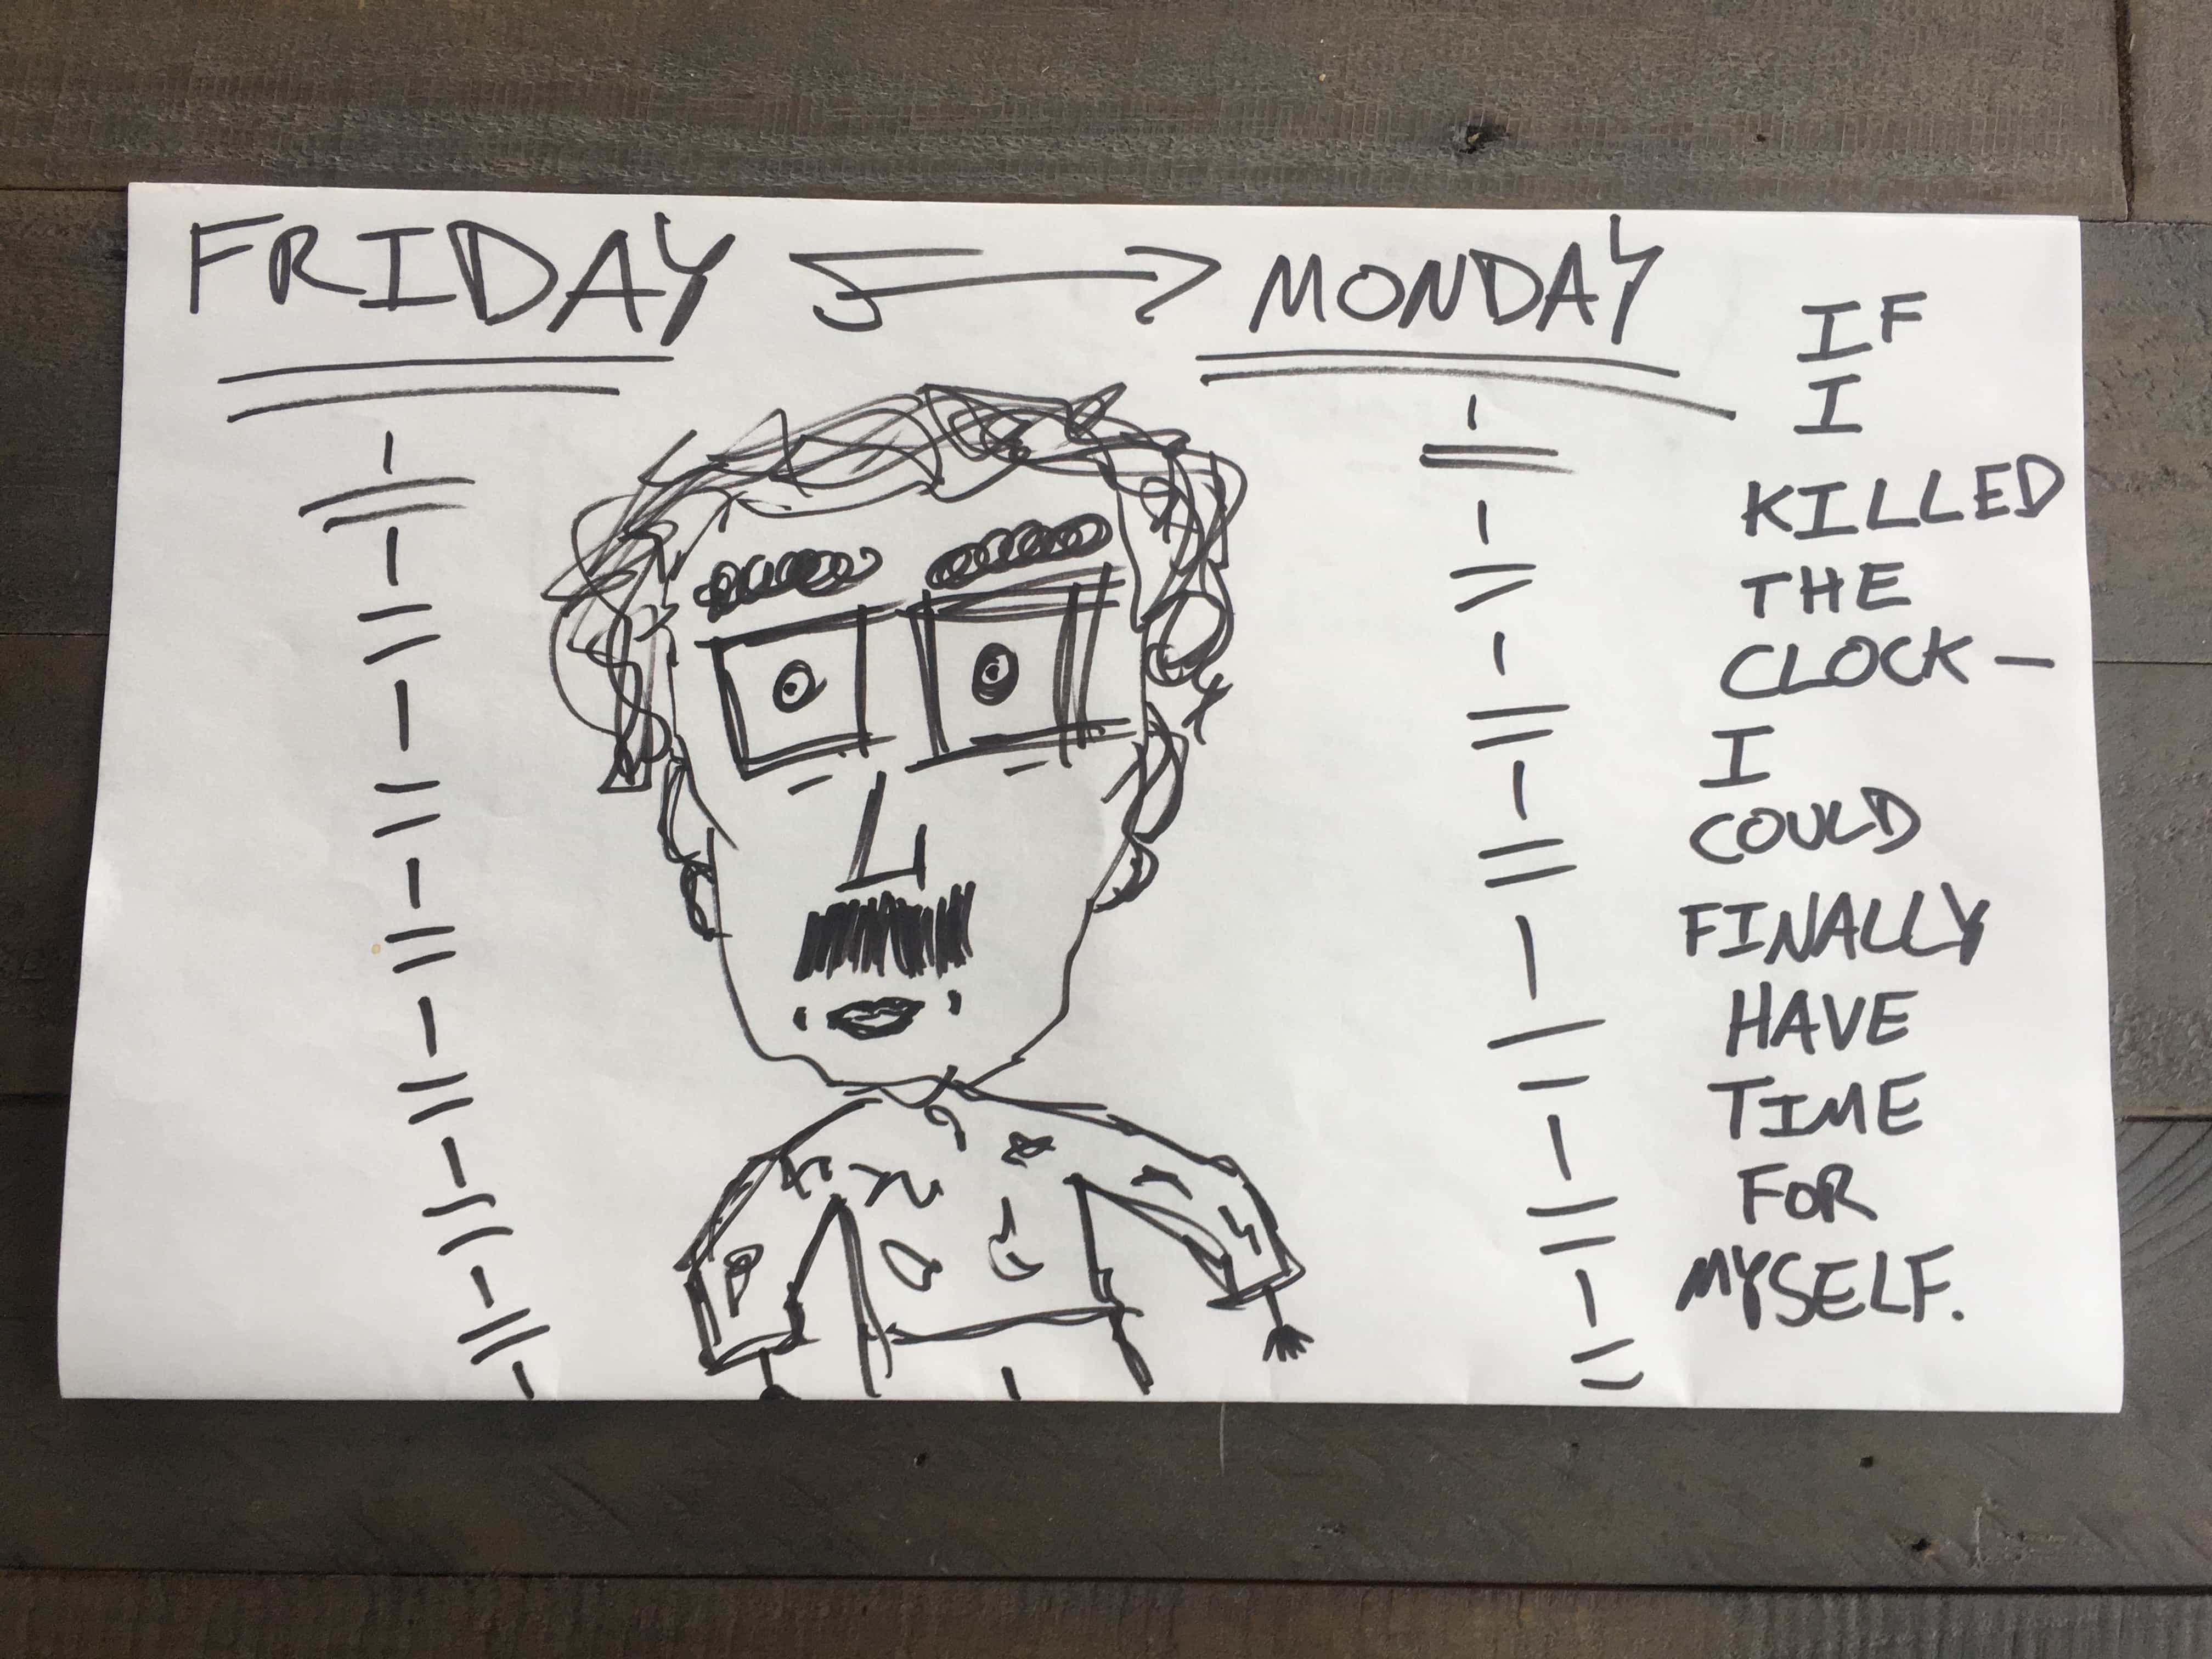 FRIDAY MONDAY
IF
I
KILLED
THE
CLOCK –
I
COULD
FINALLY
HAVE
TIME
FOR
MYSELF.